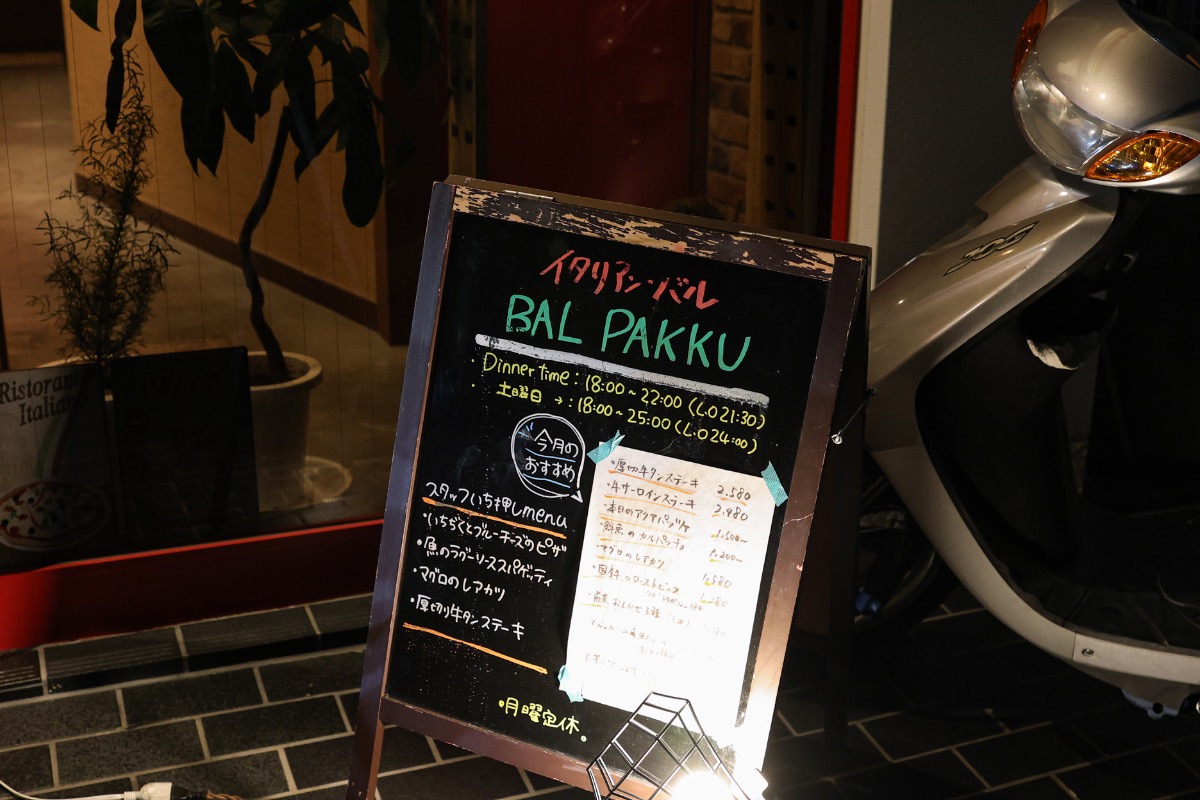 イタリアン・バル
BAL PAKKU
・Dinner time : 18:00~22:00 (L.O 21:30)
・土曜日 → : 18:00~25:00 (L.O 24:00)
今月の
おすすめ
スタッフいち押しmenu
・いちぢくとブルーチーズのピザ
・魚のラグーソーススパゲッティ
・マグロのレアカツ
・厚切り牛タンステーキ
・月曜定休。
・厚切牛タンステーキ 2.580
・牛サーロインステーキ 2.980
・本日のアクアパッツァ 1.500~
・鮮魚のカルパッチョ 1.200~
・マグロのレアカツ 1.580
1.280
・前菜おまかせ3種
Ristorante
Italiano